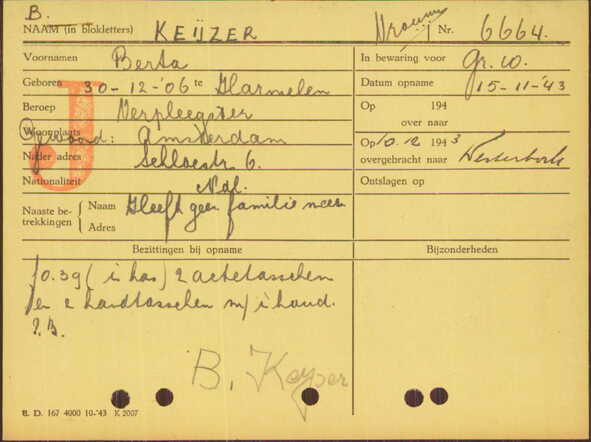 B.
NAAM (in blokletters) KEIJZER Vrouw Nr. 6664.
Voornamen Berta In bewaring voor Gr. W.
Geboren 30-12-'06 te Harmelen Datum opname 15-11-'43
Beroep Verpleegster Op 194
over naar
Woonplaats Gewoond: Amsterdam
Op 10.12 1943
Nader adres Sellaestr 6. overgebracht naar Westerbork
Nationaliteit Ndl. Ontslagen op
J
Naaste betrekkingen Naam Heeft geen familie meer
Adres
Bezittingen bij opname Bijzonderheden
f0.39 (i kas) 2 actetasschen
en 2 handtasschen m/ inhoud.
B. Keyzer
B. D. 167 4000 10-'43 K 2007